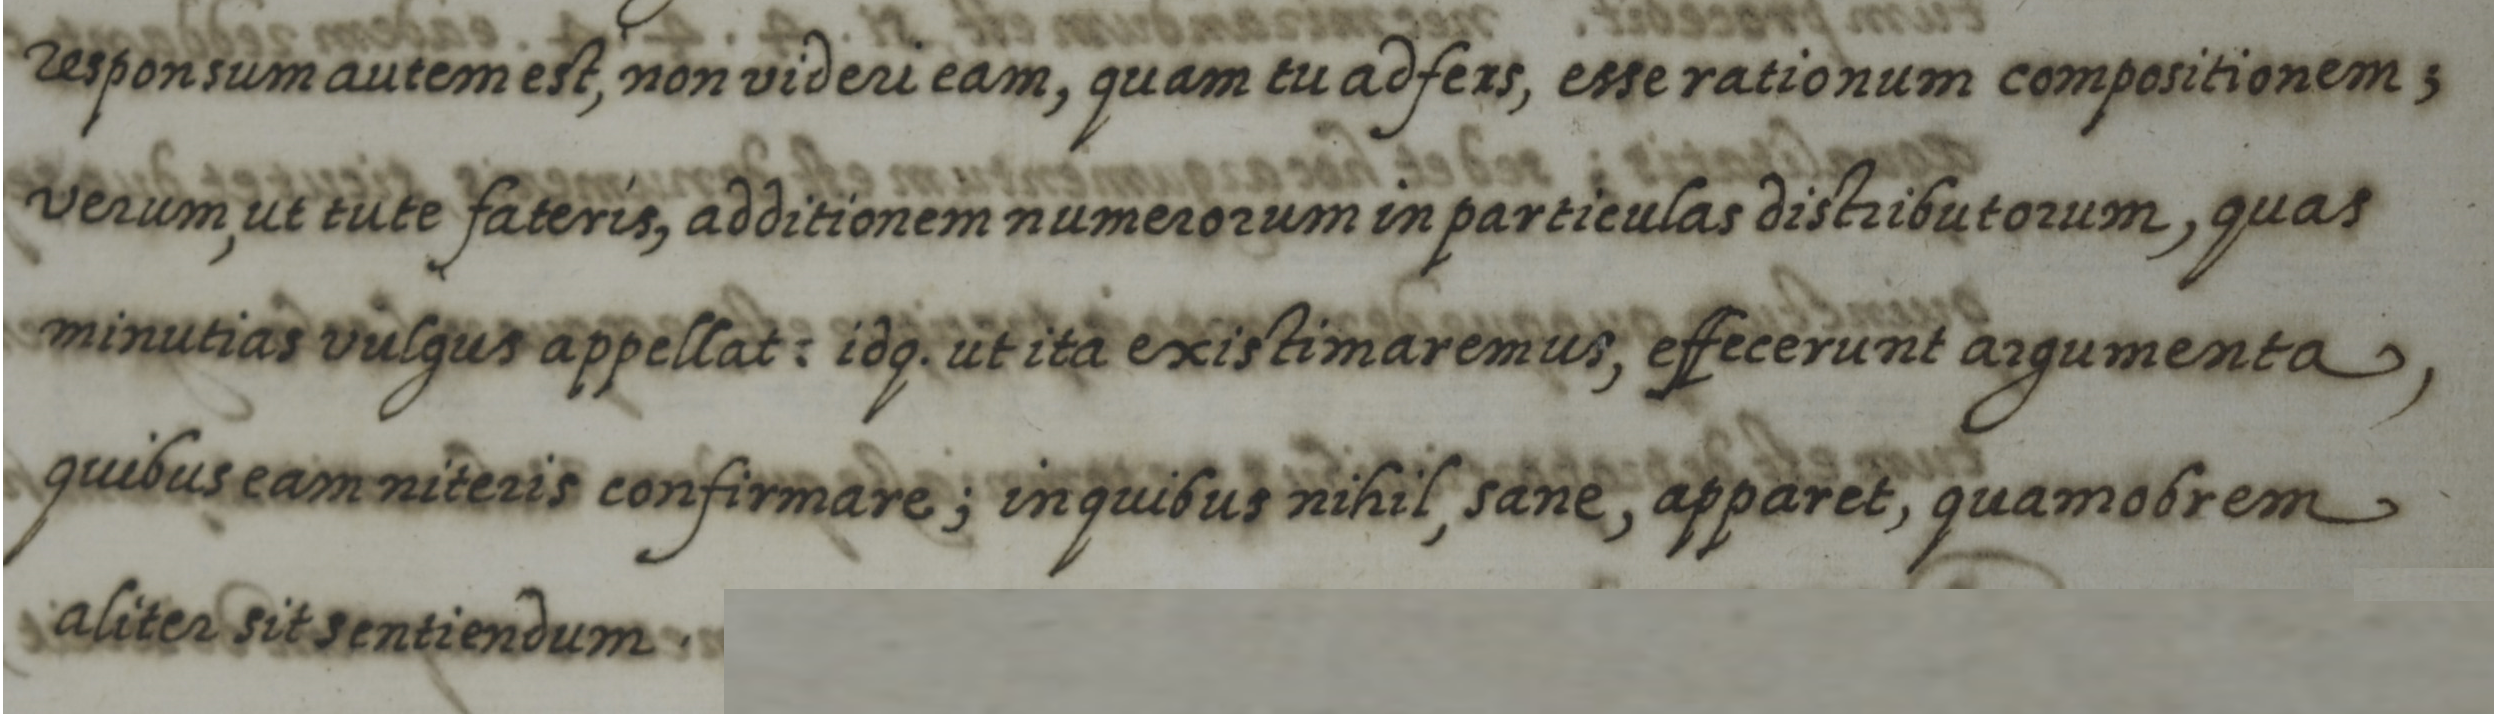 responsum autem est, non videri eam, quam tu adfers, esse rationum compositionem;
verum, ut tute fateris, additionem numerorum in particulas distributorum, quas
minutias vulgus appellat: idq. ut ita existimaremus, effecerunt argumenta,
quibus eam niteris confirmare; in quibus nihil, sane, apparet, quamobrem
aliter sit sentiendum.